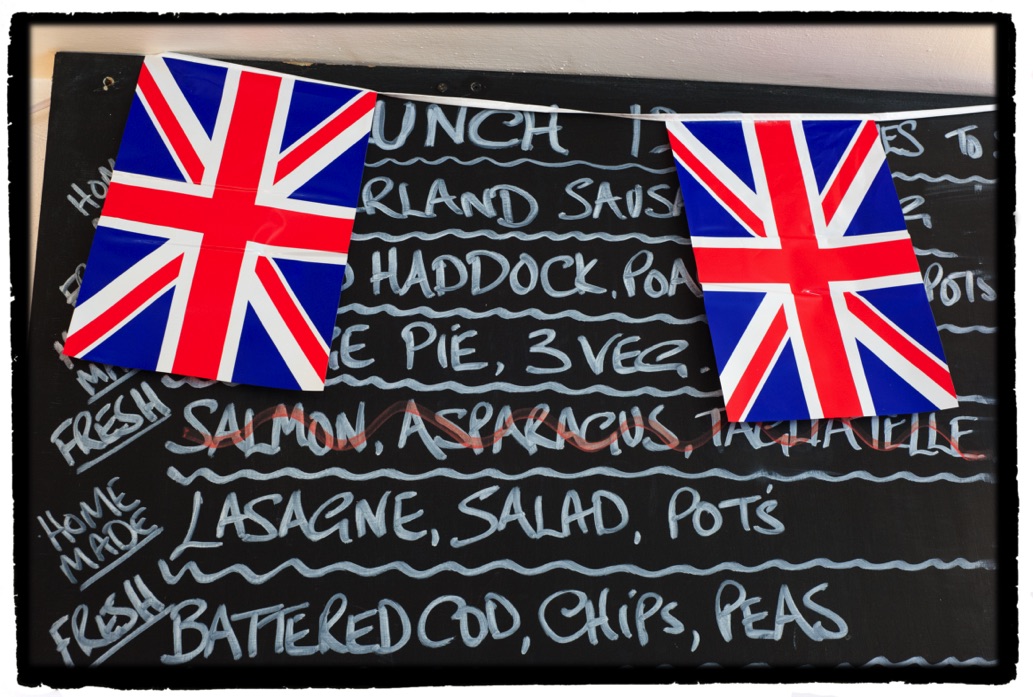 UNCH 12 ES TO
HOM RLAND SAUSA
HADDOCK. POA POTS
PIE, 3 VEG.
FRESH SALMON, ASPARAGUS, TAGLIATELLE
HOME MADE LASAGNE, SALAD, POT'S
FRESH BATTERED COD, CHIPS, PEAS